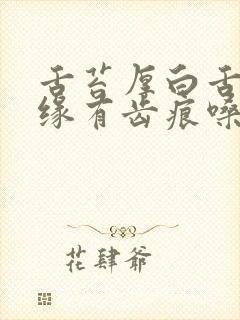 舌苔厚白舌
缘有齿痕嗓
花肆爷